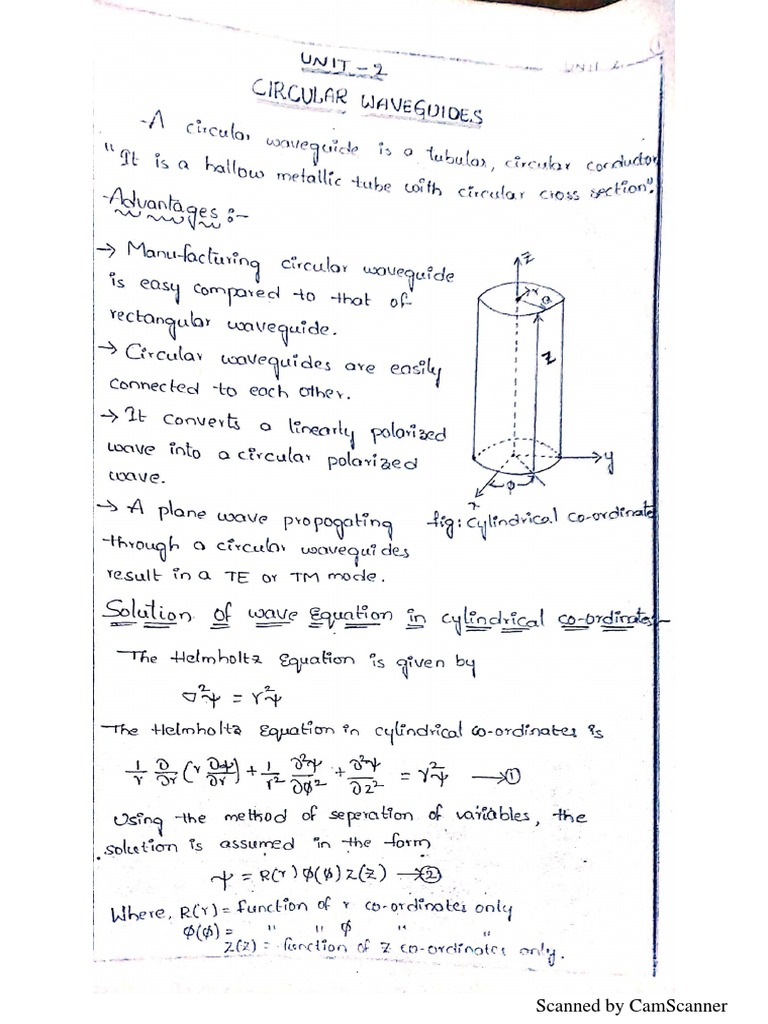 UNIT-2
CIRCULAR WAVEGUIDES
-A circular waveguide is a tubular, circular conductor
"It is a hallow metallic tube with circular cross section".
-Advantages:-
→ Manu-facturing circular waveguide
is easy compared to that of
rectangular waveguide.
→ Circular waveguides are easily
connected to each other.
→ It converts a linearly polarized
wave into a circular polarized
wave.
→ A plane wave propogating
through a circular waveguides
result in a TE or TM mode.
z
r
z
y
x
φ
fig: cylindrical co-ordinate
Solution of wave Equation in cylindrical co-ordinates:-
The Helmholtz Equation is given by
∇²ψ = γ²ψ
The Helmholtz Equation in cylindrical co-ordinates is
1/r ∂/∂r (r ∂ψ/∂r) + 1/r² ∂²ψ/∂φ² + ∂²ψ/∂z² = γ²ψ → ①
Using the method of seperation of variables, the
solution is assumed in the form
ψ = R(r) φ(φ) Z(z) → ②
Where, R(r) = function of r co-ordinates only
φ(φ) = " " φ " "
Z(z) = function of z co-ordinates only.
Scanned by CamScanner